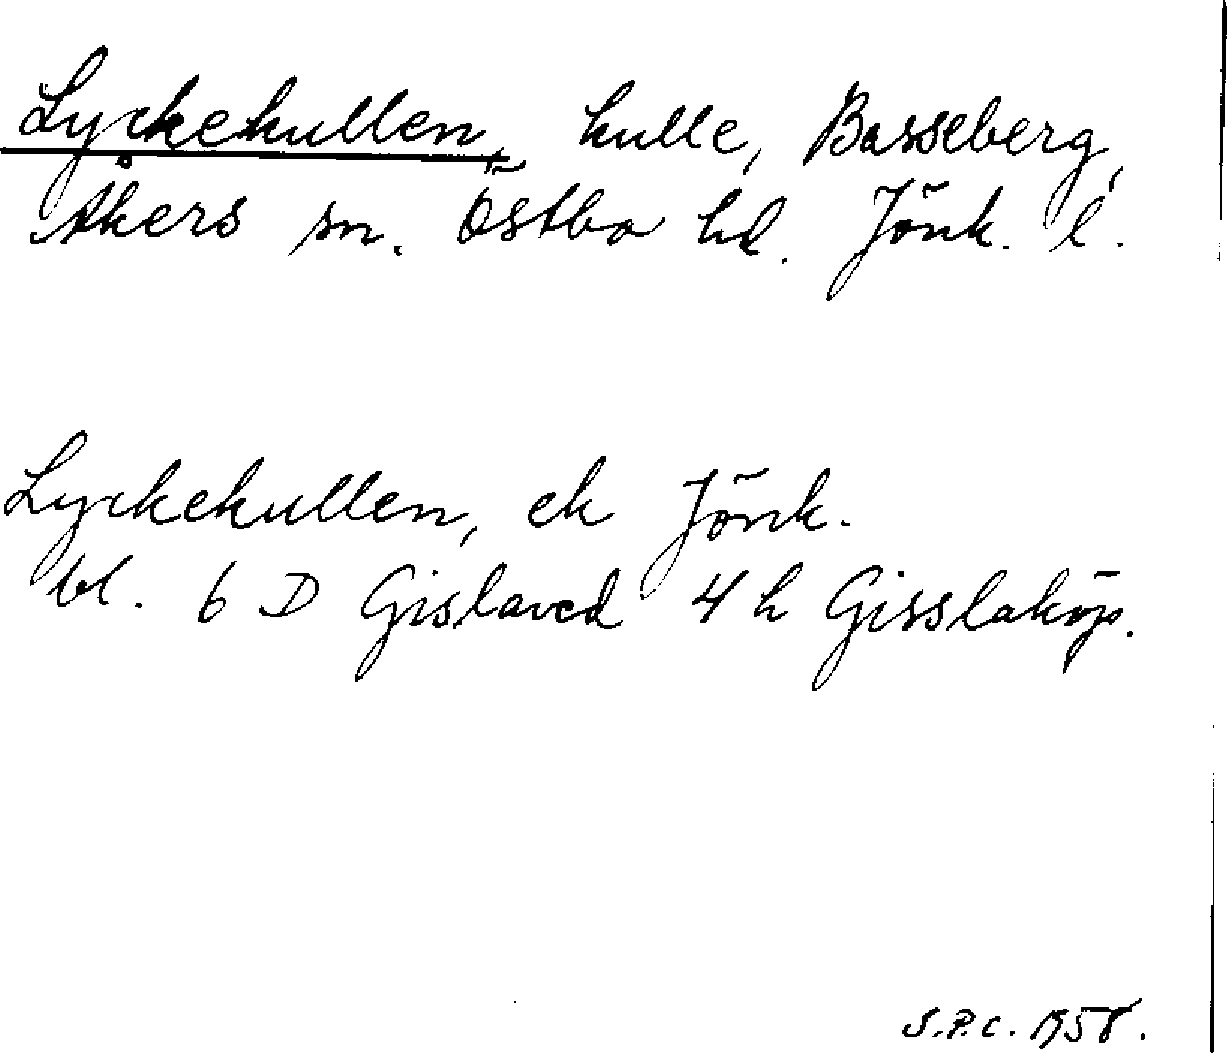 Lyckekullen, kulle, Basseberg,
Åkers sn. Östbo hd. Jönk. l.
Lyckekullen, ek Jönk.
bl. 6 D Gislaved 4 h Gisslaköp.
S.P.C. 1958.